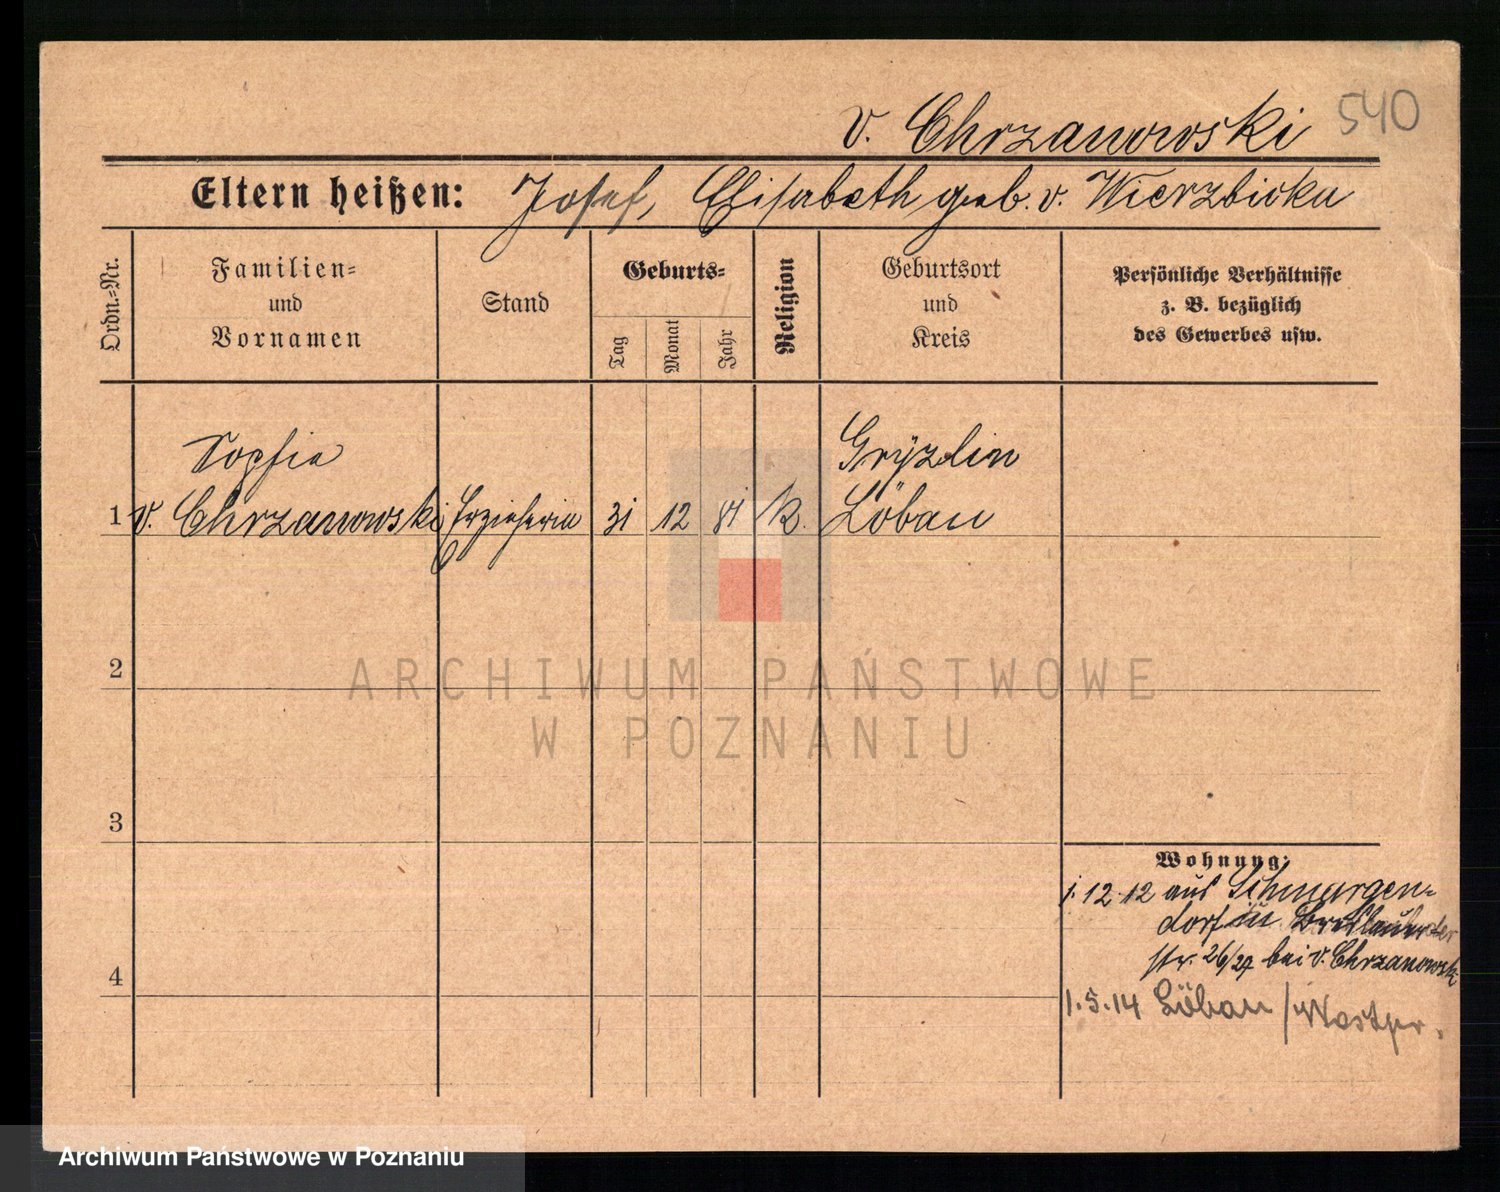 v. Chrzanowski 540
Eltern heißen: Josef, Elisabeth geb. v. Wierzbicka
Ordn.-Nr.
Familien-
und
Vornamen
Stand
Geburts-
Tag
Monat
Jahr
Religion
Geburtsort
und
Kreis
Persönliche Verhältnisse
z. B. bezüglich
des Gewerbes usw.
Sophie Gryzlin
1 v. Chrzanowski Erzieherin 31 12 81 K. Löbau
2
ARCHIWUM PAŃSTWOWE
W POZNANIU
3
Wohnung:
1.12.12 aus Schmargen-
dorf in Breslauer
str. 26/27 bei v. Chrzanowsk
4
1.5.14 Löbau / Westpr.
Archiwum Państwowe w Poznaniu